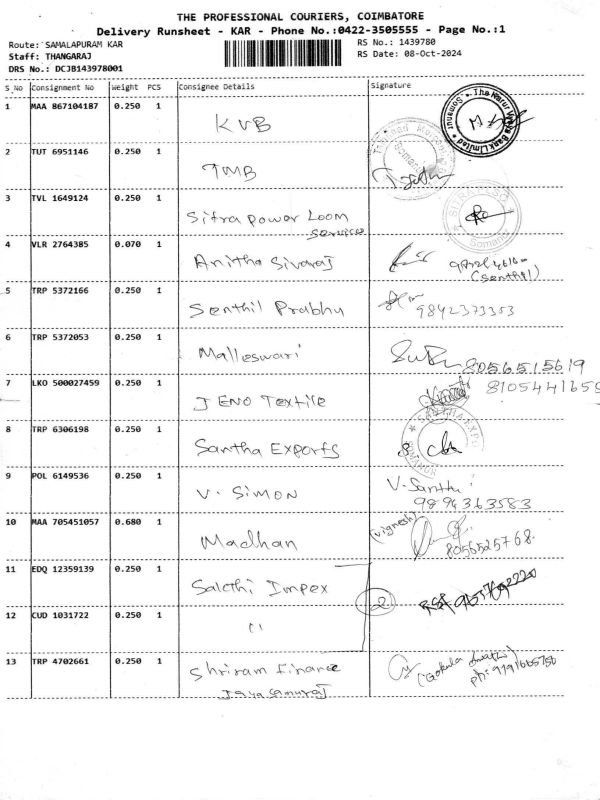 THE PROFESSIONAL COURIERS, COIMBATORE
Delivery Runsheet - KAR - Phone No.:0422-3505555 - Page No.:1
Route: SAMALAPURAM KAR
RS No.: 1439780
Staff: THANGARAJ
RS Date: 08-Oct-2024
DRS No.: DCJB143978001
S_No Consignment No Weight PCS Consignee Details Signature
1 MAA 867104187 0.250 1 KVB
2 TUT 6951146 0.250 1 TMB
3 TVL 1649124 0.250 1 Sitra Power Loom
Service
4 VLR 2764385 0.070 1 Anitha Sivaraj
(Senthil)
5 TRP 5372166 0.250 1 Senthil Prabhu 9842373353
6 TRP 5372053 0.250 1 Malleswari 8056515619
7 LKO 500027459 0.250 1 JENO Textile 8105441659
8 TRP 6306198 0.250 1 Santha Exports
9 POL 6149536 0.250 1 V. SIMON V. Santhi
9894363583
10 MAA 705451057 0.680 1 Madhan (vignesh)
8056525768
11 EDQ 12359139 0.250 1 Sakthi Impex
2
12 CUD 1031722 0.250 1 "
13 TRP 4702661 0.250 1 Shriram finance